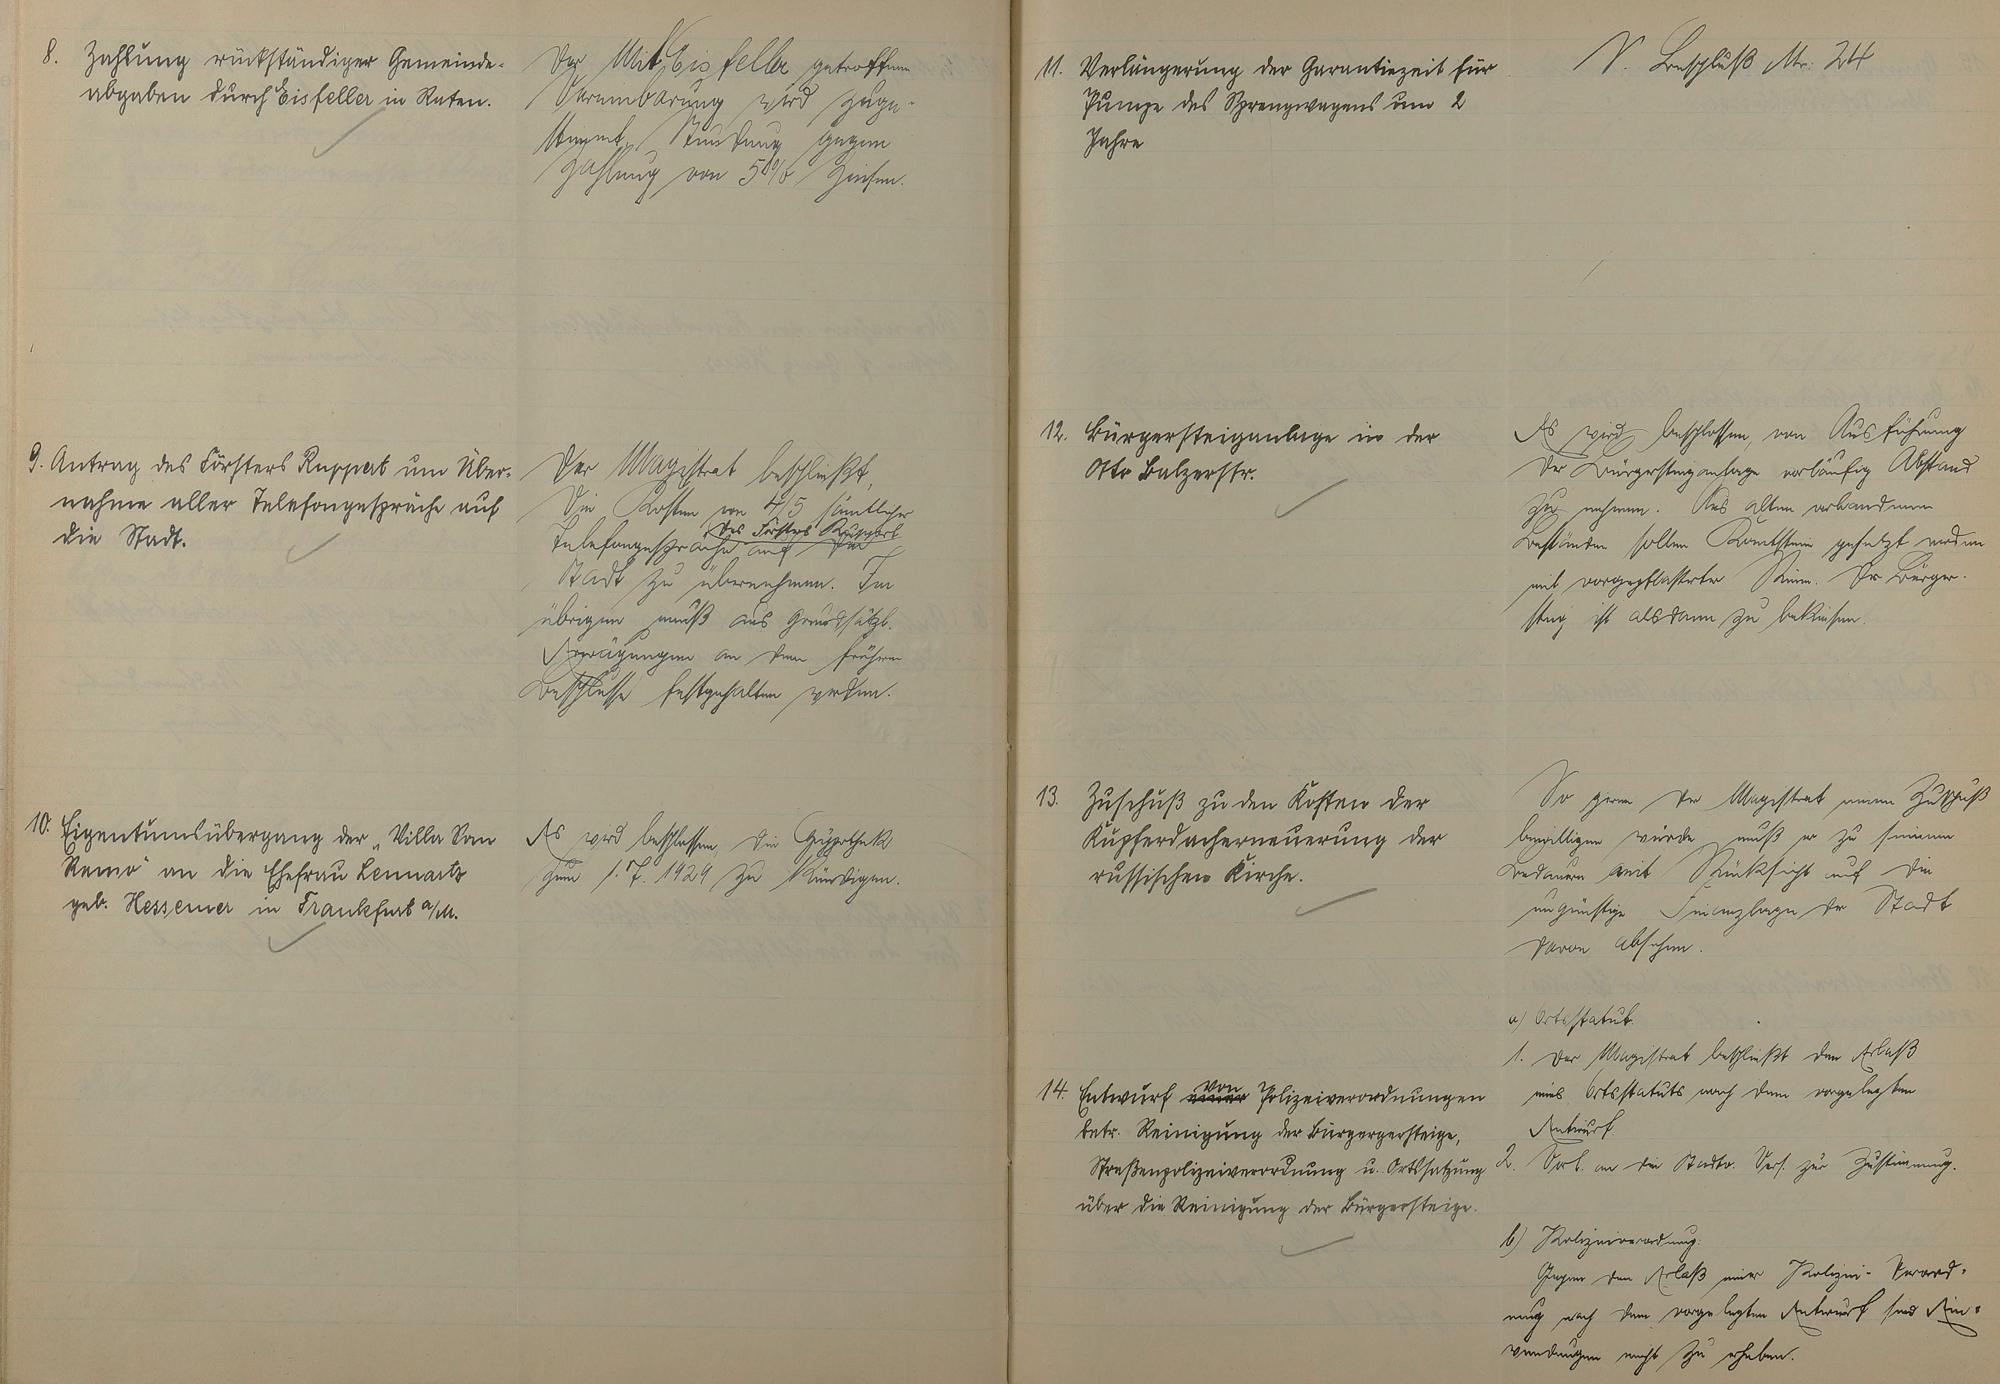 8. Zahlung rückständiger Gemeinde-
abgaben durch Eisfeller in Raten.
Der Mit Eisfeller getroffenen
Vereinbarung wird zuge-
stimmt, Stundung gegen
Zahlung von 5% Zinsen.
9. Antrag des Försters Ruppert um Über-
nahme aller Telefongespräche auf
die Stadt.
Der Magistrat beschließt,
die Kosten von 4/5 sämtlicher
des Försters Ruppert
Telefongespräche auf die
Stadt zu übernehmen. Im
übrigen muß aus grundsätzl.
Erwägungen an dem frühern
Beschlusse festgehalten werden.
10. Eigentumsübergang der „Villa San
Remo" an die Ehefrau Lennartz
geb. Hessemer in Frankfurt a/M.
Es wird beschlossen, die Hypothek
zum 1.7.1929 zu kündigen.
11. Verlängerung der Garantiezeit für
Pumpe des Sprengwagens um 2
Jahre
S. Beschluß Nr. 24
12. Bürgersteiganlage in der
Otto Balzerstr.
Es wird beschlossen, von Ausführung
der Bürgersteiganlage vorläufig Abstand
zu nehmen. Aus alten vorhandenen
Beständen sollen Randsteine gesetzt werden
mit vorgepflasterter Rinne. Der Bürger-
steig ist alsdann zu bekiesen.
13. Zuschuß zu den Kosten der
Kupferdacherneuerung der
russischen Kirche.
So gern der Magistrat einen Zuschuß
bewilligen würde, muß er zu seinem
Bedauern mit Rücksicht auf die
ungünstige Finanzlage der Stadt
davon absehen.
14. Entwurf von Polizeiverordnungen
betr. Reinigung der Bürgergersteige,
Straßenpolizeiverordnung u. Ortssatzung
über die Reinigung der Bürgersteige.
a) Ortsstatut.
1. Der Magistrat beschließt den Erlaß
eines Ortsstatuts nach dem vorgelegten
Entwurf.
2. Vorl. an die Stadtv. Vers. zur Zustimmung.
b) Polizeiverordnung:
Gegen den Erlaß einer Polizei-Verord-
nung nach dem vorgelegten Entwurf sind Ein-
wendungen nicht zu erheben.